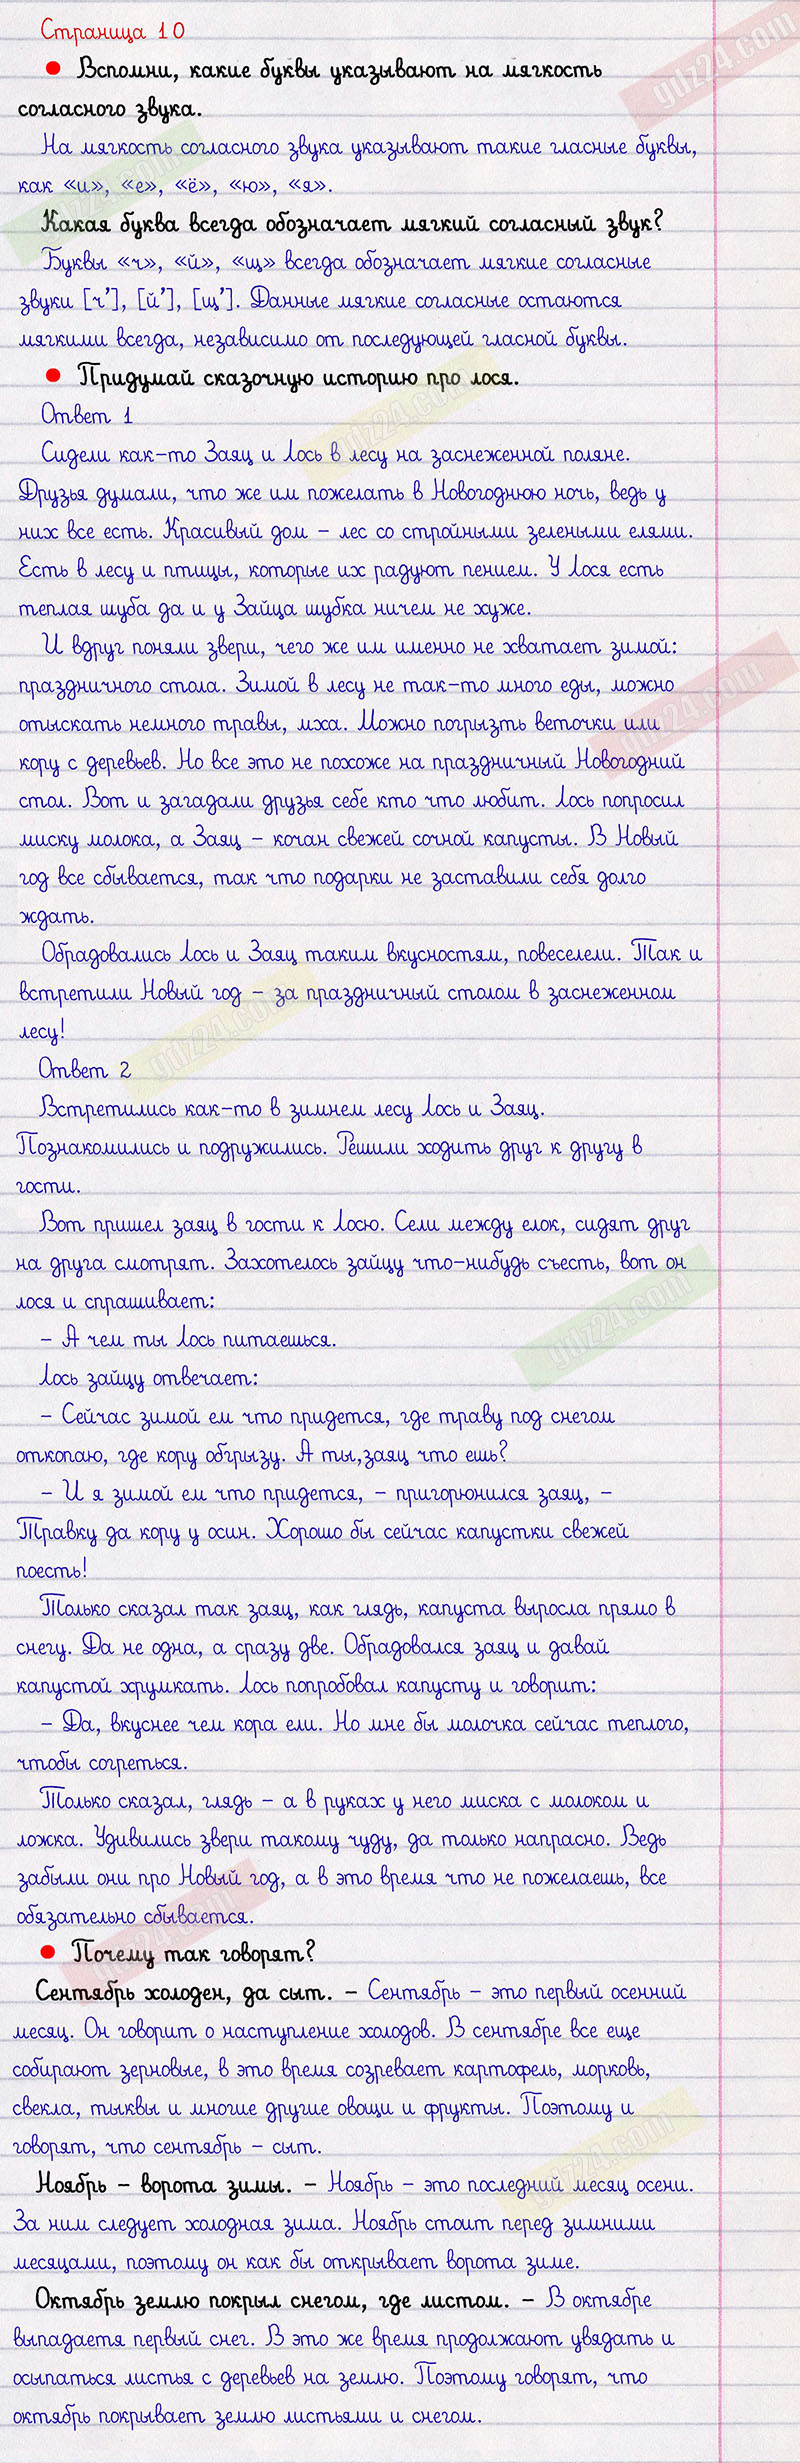 Страница 10
• Вспомни, какие буквы указывают на мягкость
согласного звука.
На мягкость согласного звука указывают такие гласные буквы,
как «и», «е», «ё», «ю», «я».
Какая буква всегда обозначает мягкий согласный звук?
Буквы «ч», «й», «щ» всегда обозначает мягкие согласные
звуки [ч’], [й’], [щ’]. Данные мягкие согласные остаются
мягкими всегда, независимо от последующей гласной буквы.
• Придумай сказочную историю про лося.
Ответ 1
Сидели как-то Заяц и Лось в лесу на заснеженной поляне.
Друзья думали, что же им пожелать в Новогоднюю ночь, ведь у
них все есть. Красивый дом – лес со стройными зелеными елями.
Есть в лесу и птицы, которые их радуют пением. У Лося есть
теплая шуба да и у Зайца шубка ничем не хуже.
И вдруг поняли звери, чего же им именно не хватает зимой:
праздничного стола. Зимой в лесу не так-то много еды, можно
отыскать немного травы, мха. Можно погрызть веточки или
кору с деревьев. Но все это не похоже на праздничный Новогодний
стол. Вот и загадали друзья себе кто что любит. Лось попросил
миску молока, а Заяц – кочан свежей сочной капусты. В Новый
год все сбывается, так что подарки не заставили себя долго
ждать.
Обрадовались Лось и Заяц таким вкусностям, повеселели. Так и
встретили Новый год – за праздничный столом в заснеженном
лесу!
Ответ 2
Встретились как-то в зимнем лесу Лось и Заяц.
Познакомились и подружились. Решили ходить друг к другу в
гости.
Вот пришел заяц в гости к Лосю. Сели между елок, сидят друг
на друга смотрят. Захотелось зайцу что-нибудь съесть, вот он
лося и спрашивает:
– А чем ты Лось питаешься.
Лось зайцу отвечает:
– Сейчас зимой ем что придется, где траву под снегом
откопаю, где кору обгрызу. А ты,заяц что ешь?
– И я зимой ем что придется, – пригорюнился заяц, –
Травку да кору у осин. Хорошо бы сейчас капустки свежей
поесть!
Только сказал так заяц, как глядь, капуста выросла прямо в
снегу. Да не одна, а сразу две. Обрадовался заяц и давай
капустой хрумкать. Лось попробовал капусту и говорит:
– Да, вкуснее чем кора ели. Но мне бы молочка сейчас теплого,
чтобы согреться.
Только сказал, глядь – а в руках у него миска с молоком и
ложка. Удивились звери такому чуду, да только напрасно. Ведь
забыли они про Новый год, а в это время что не пожелаешь, все
обязательно сбывается.
• Почему так говорят?
Сентябрь холоден, да сыт. – Сентябрь – это первый осенний
месяц. Он говорит о наступление холодов. В сентябре все еще
собирают зерновые, в это время созревает картофель, морковь,
свекла, тыквы и многие другие овощи и фрукты. Поэтому и
говорят, что сентябрь – сыт.
Ноябрь – ворота зимы. – Ноябрь – это последний месяц осени.
За ним следует холодная зима. Ноябрь стоит перед зимними
месяцами, поэтому он как бы открывает ворота зиме.
Октябрь землю покрыл снегом, где листом. – В октябре
выпадаетя первый снег. В это же время продолжают увядать и
осыпаться листья с деревьев на землю. Поэтому говорят, что
октябрь покрывает землю листьями и снегом.
gdz24.com
gdz24.com
gdz24.com
gdz24.com
gdz24.com
gdz24.com
gdz24.com
gdz24.com